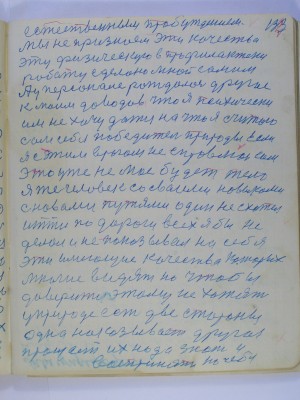 естественным пробуждением.
мы не признаем эти качества
эту физическую в профилактени
работу сделано мной самим
А у персонале рождало другие
к моим доводов что я психически
им не хочу дати на что я считаю
сам себя победител природы если
я с этим врагом не справлюсь сам
это уже не мое будет тело
я же человек со своими новыми
с новыми путями один не схотел
итти по дороги всех я бы не
делал и не показывал на себя
эти имеющие качества которых
многие видят но чтобы
доверит этому не хотят
у природе есть две стороны
одна наказывает другая
прощает их надо знать и
воспринять по чет